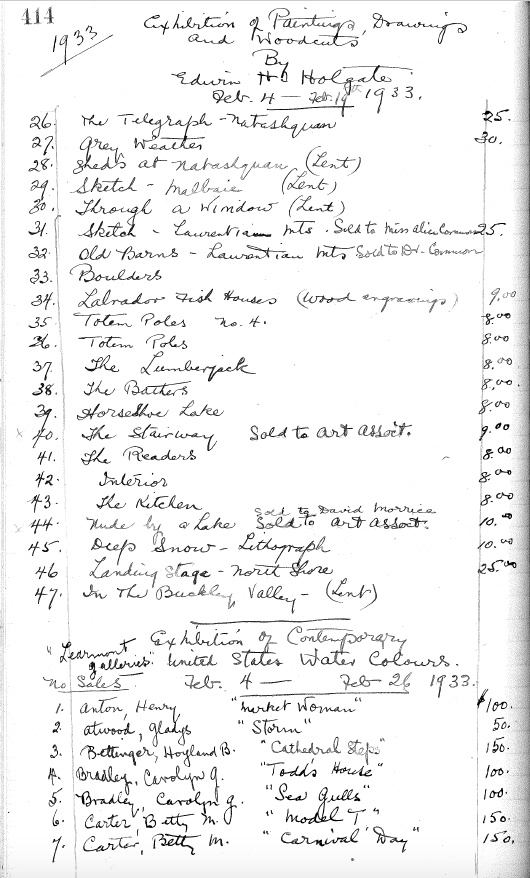 414
1933
Exhibition of Paintings, Drawings
and Woodcuts
By
Edwin H. Holgate
Feb. 4 — Feb. 19th 1933.
26. The Telegraph - Natashquan 25.
27. Grey Weather 30.
28. Sheds at Natashquan (Lent)
29. Sketch - Malbaie (Lent)
30. Through a Window (Lent)
31. Sketch - Laurentian Mts. Sold to Miss Alice 25.
32. Old Barns - Laurentian Mts Sold to Dr.
33. Boulders
34. Labrador Fish Houses (Wood engravings) 9.00
35 Totem Poles No. 4. 8.00
36. Totem Poles 8.00
37 The Lumberjack 8.00
38. The Bathers 8.00
39. Horseshoe Lake 8.00
x 40. The Stairway Sold to Art Assoct. 9.00
41. The Readers 8.00
42. Interior 8.00
43. The Kitchen 8.00
Sold to David Morrice
x 44. Nude by a Lake Sold to Art Assoct. 10.00
45. Deep Snow - Lithograph 10.00
46 Landing Stage - North Shore 25.00
47. In The Buckley Valley - (Lent)
Exhibition of Contemporary
"Learmont galleries" United States Water Colours.
No Sales. Feb. 4 — Feb 26 1933.
1. Anton, Henry "Market Woman" $100.
2. Atwood, Gladys "Storm" 50.
3. Bettinger, Hoyland B. "Cathedral Steps" 150.
4. Bradley, Carolyn G. "Todd's House" 100.
5. Bradley, Carolyn G. "Sea Gulls" 100.
6. Carter, Betty M. "Model T" 150.
7. Carter, Betty M. "Carnival Day" 150.